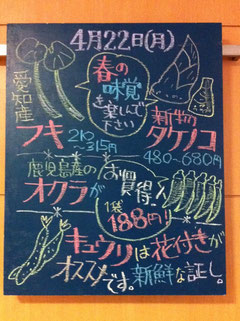 4月22日(月)
愛知産
フキ 210~315円
春の
味覚
を楽しんで
下さい
新物
タケノコ
480~680円
鹿児島産の
オクラが
お買得!!
1袋
188円!!
キュウリは花付きが
オススメです。新鮮な証し。